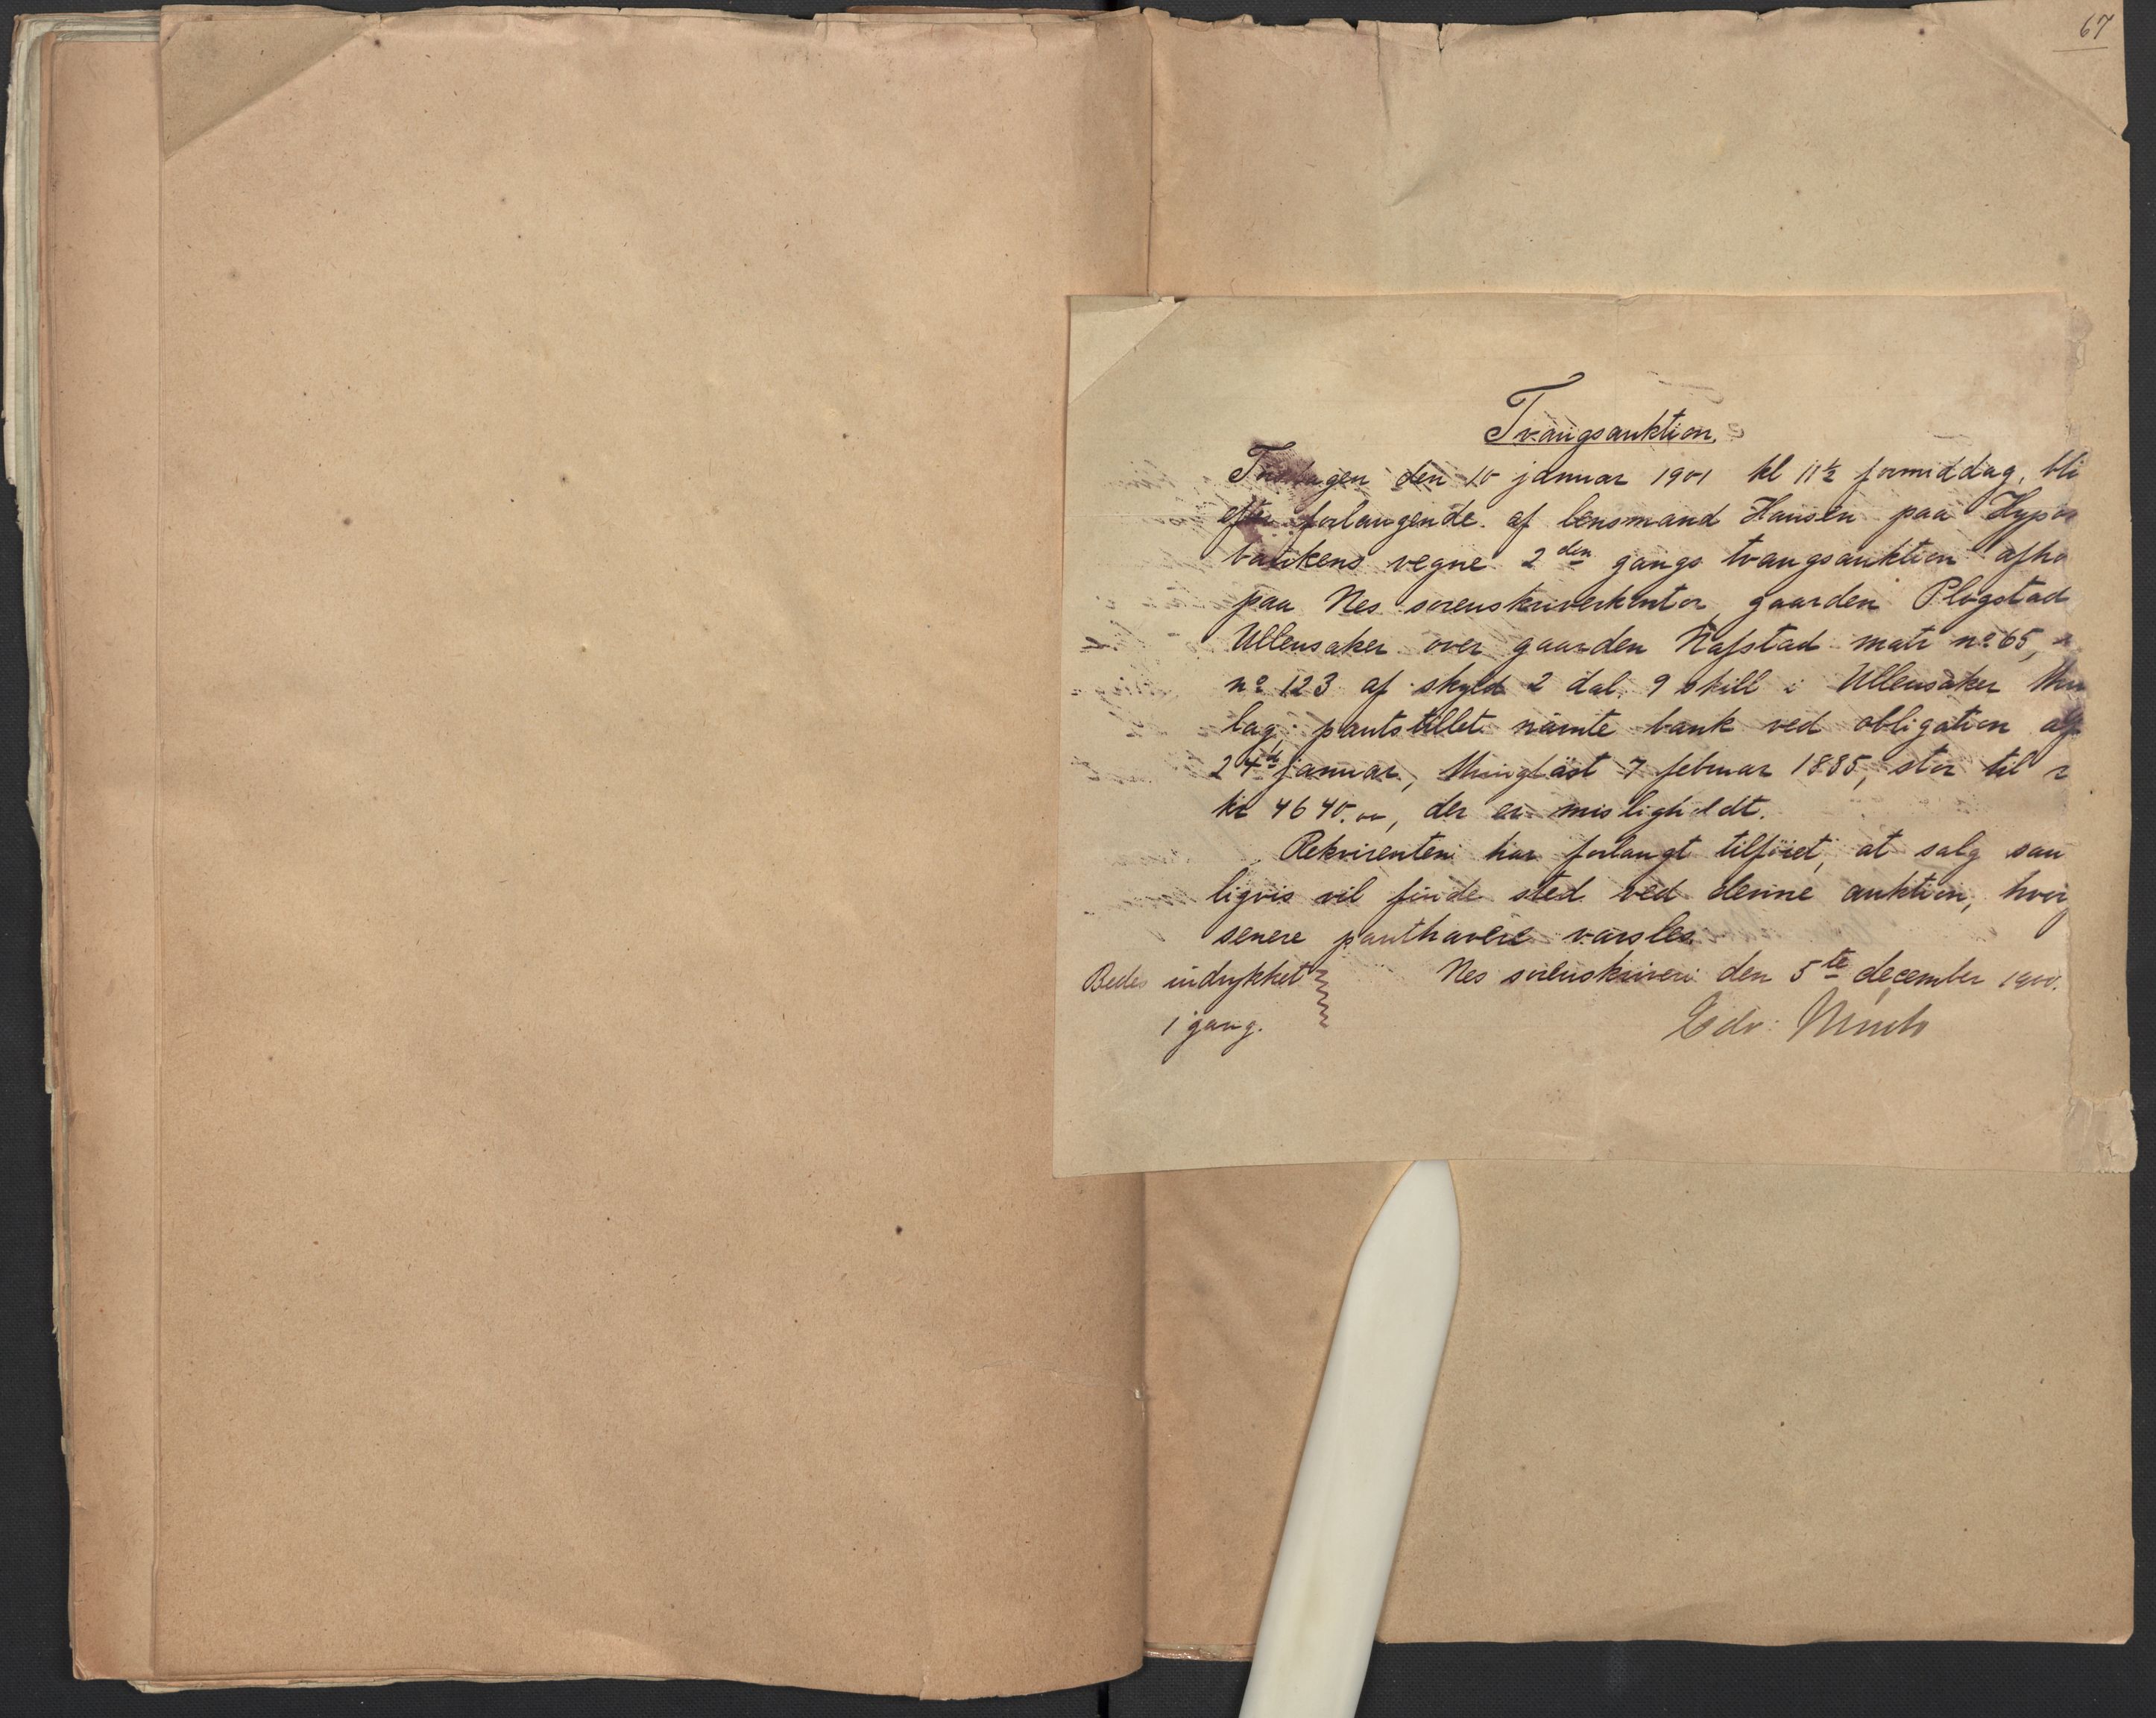 67
Tvangsauktion.
den 10 januar 1901 kl 11½ formiddag, bli
efter forlangende af lensmand Hansen paa Hypo
bankens vegne 2den gangs tvangsauktion afho
paa Nes sorenskriverkontor, gaarden Plogstad
Ullensaker over gaarden Rafstad matr no 65,
no 123 af skyld 2 dal. 9 skill i Ullensaker thin
lag, pantstillet nämte bank ved obligation af
24de januar, thinglæst 7 februar 1885, stor til
kr 4640.00, der er misligholdt.
Rekvirenten har forlangt tilføiet, at salg san
ligvis vil finde sted ved denne auktion, hvor
senere panthavere varsles.
Bedes indrykket
1 gang.
Nes sorenskriveri den 5te december 1900.
Edv: Munch